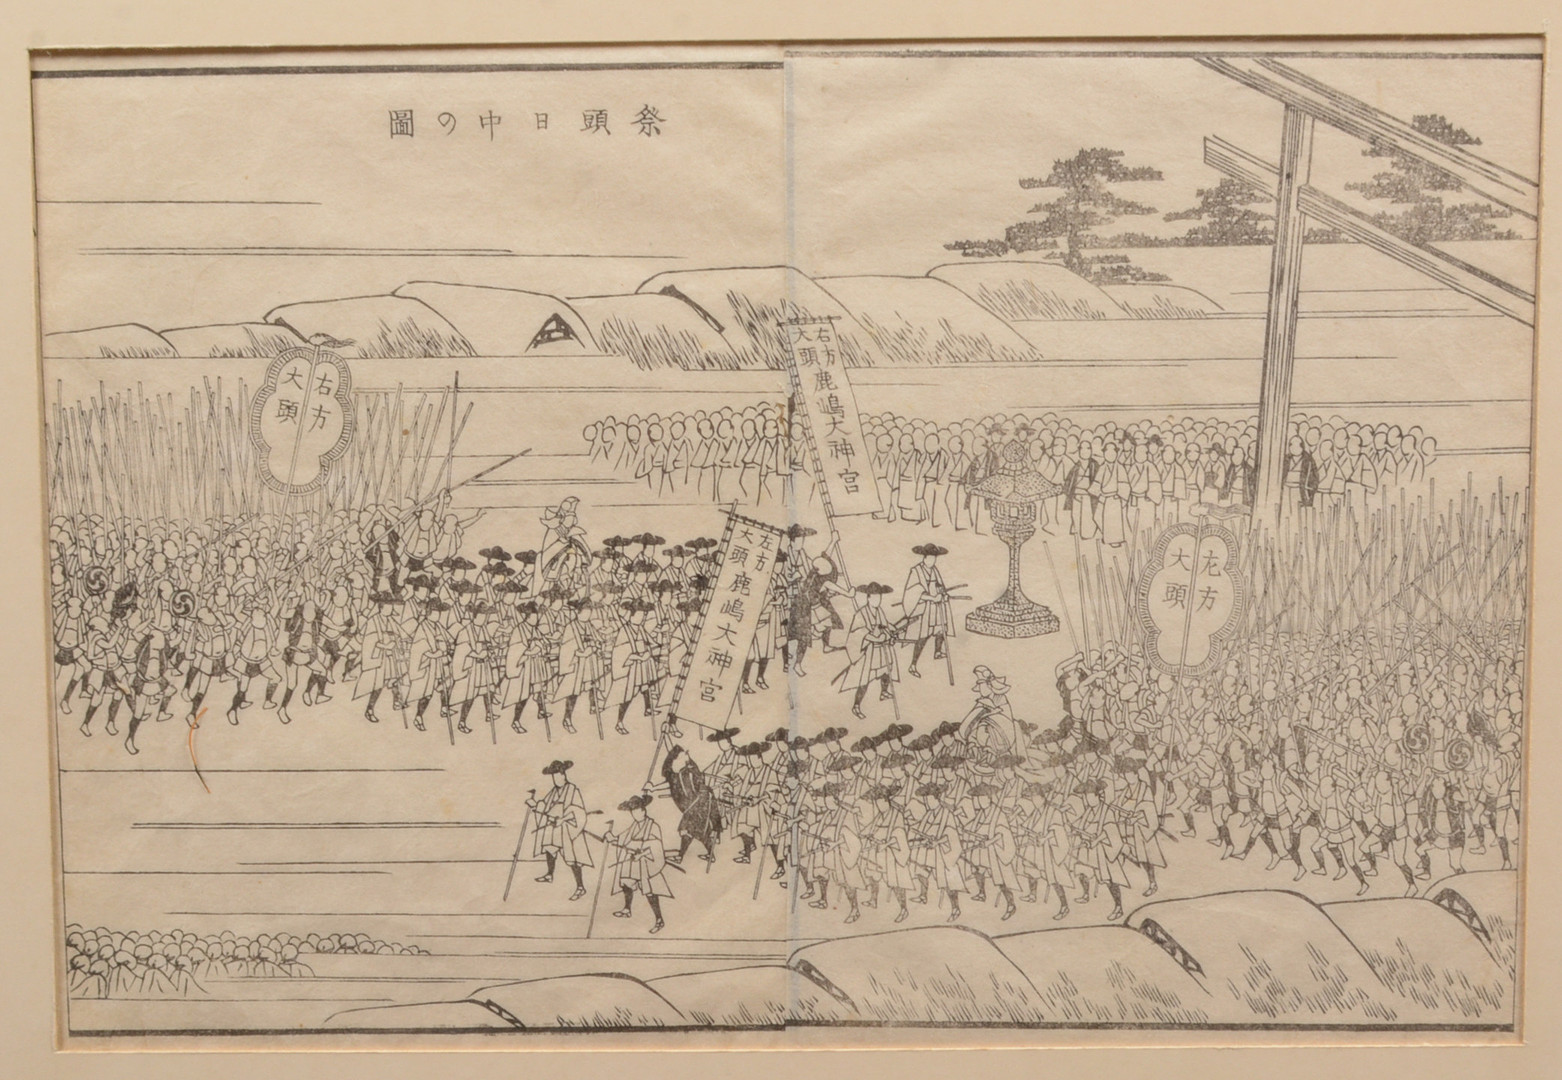 祭頭日中の圖
右方
大頭
鹿嶋大神宮
左方
大頭
鹿嶋大神宮
左方
大頭
右方
大頭